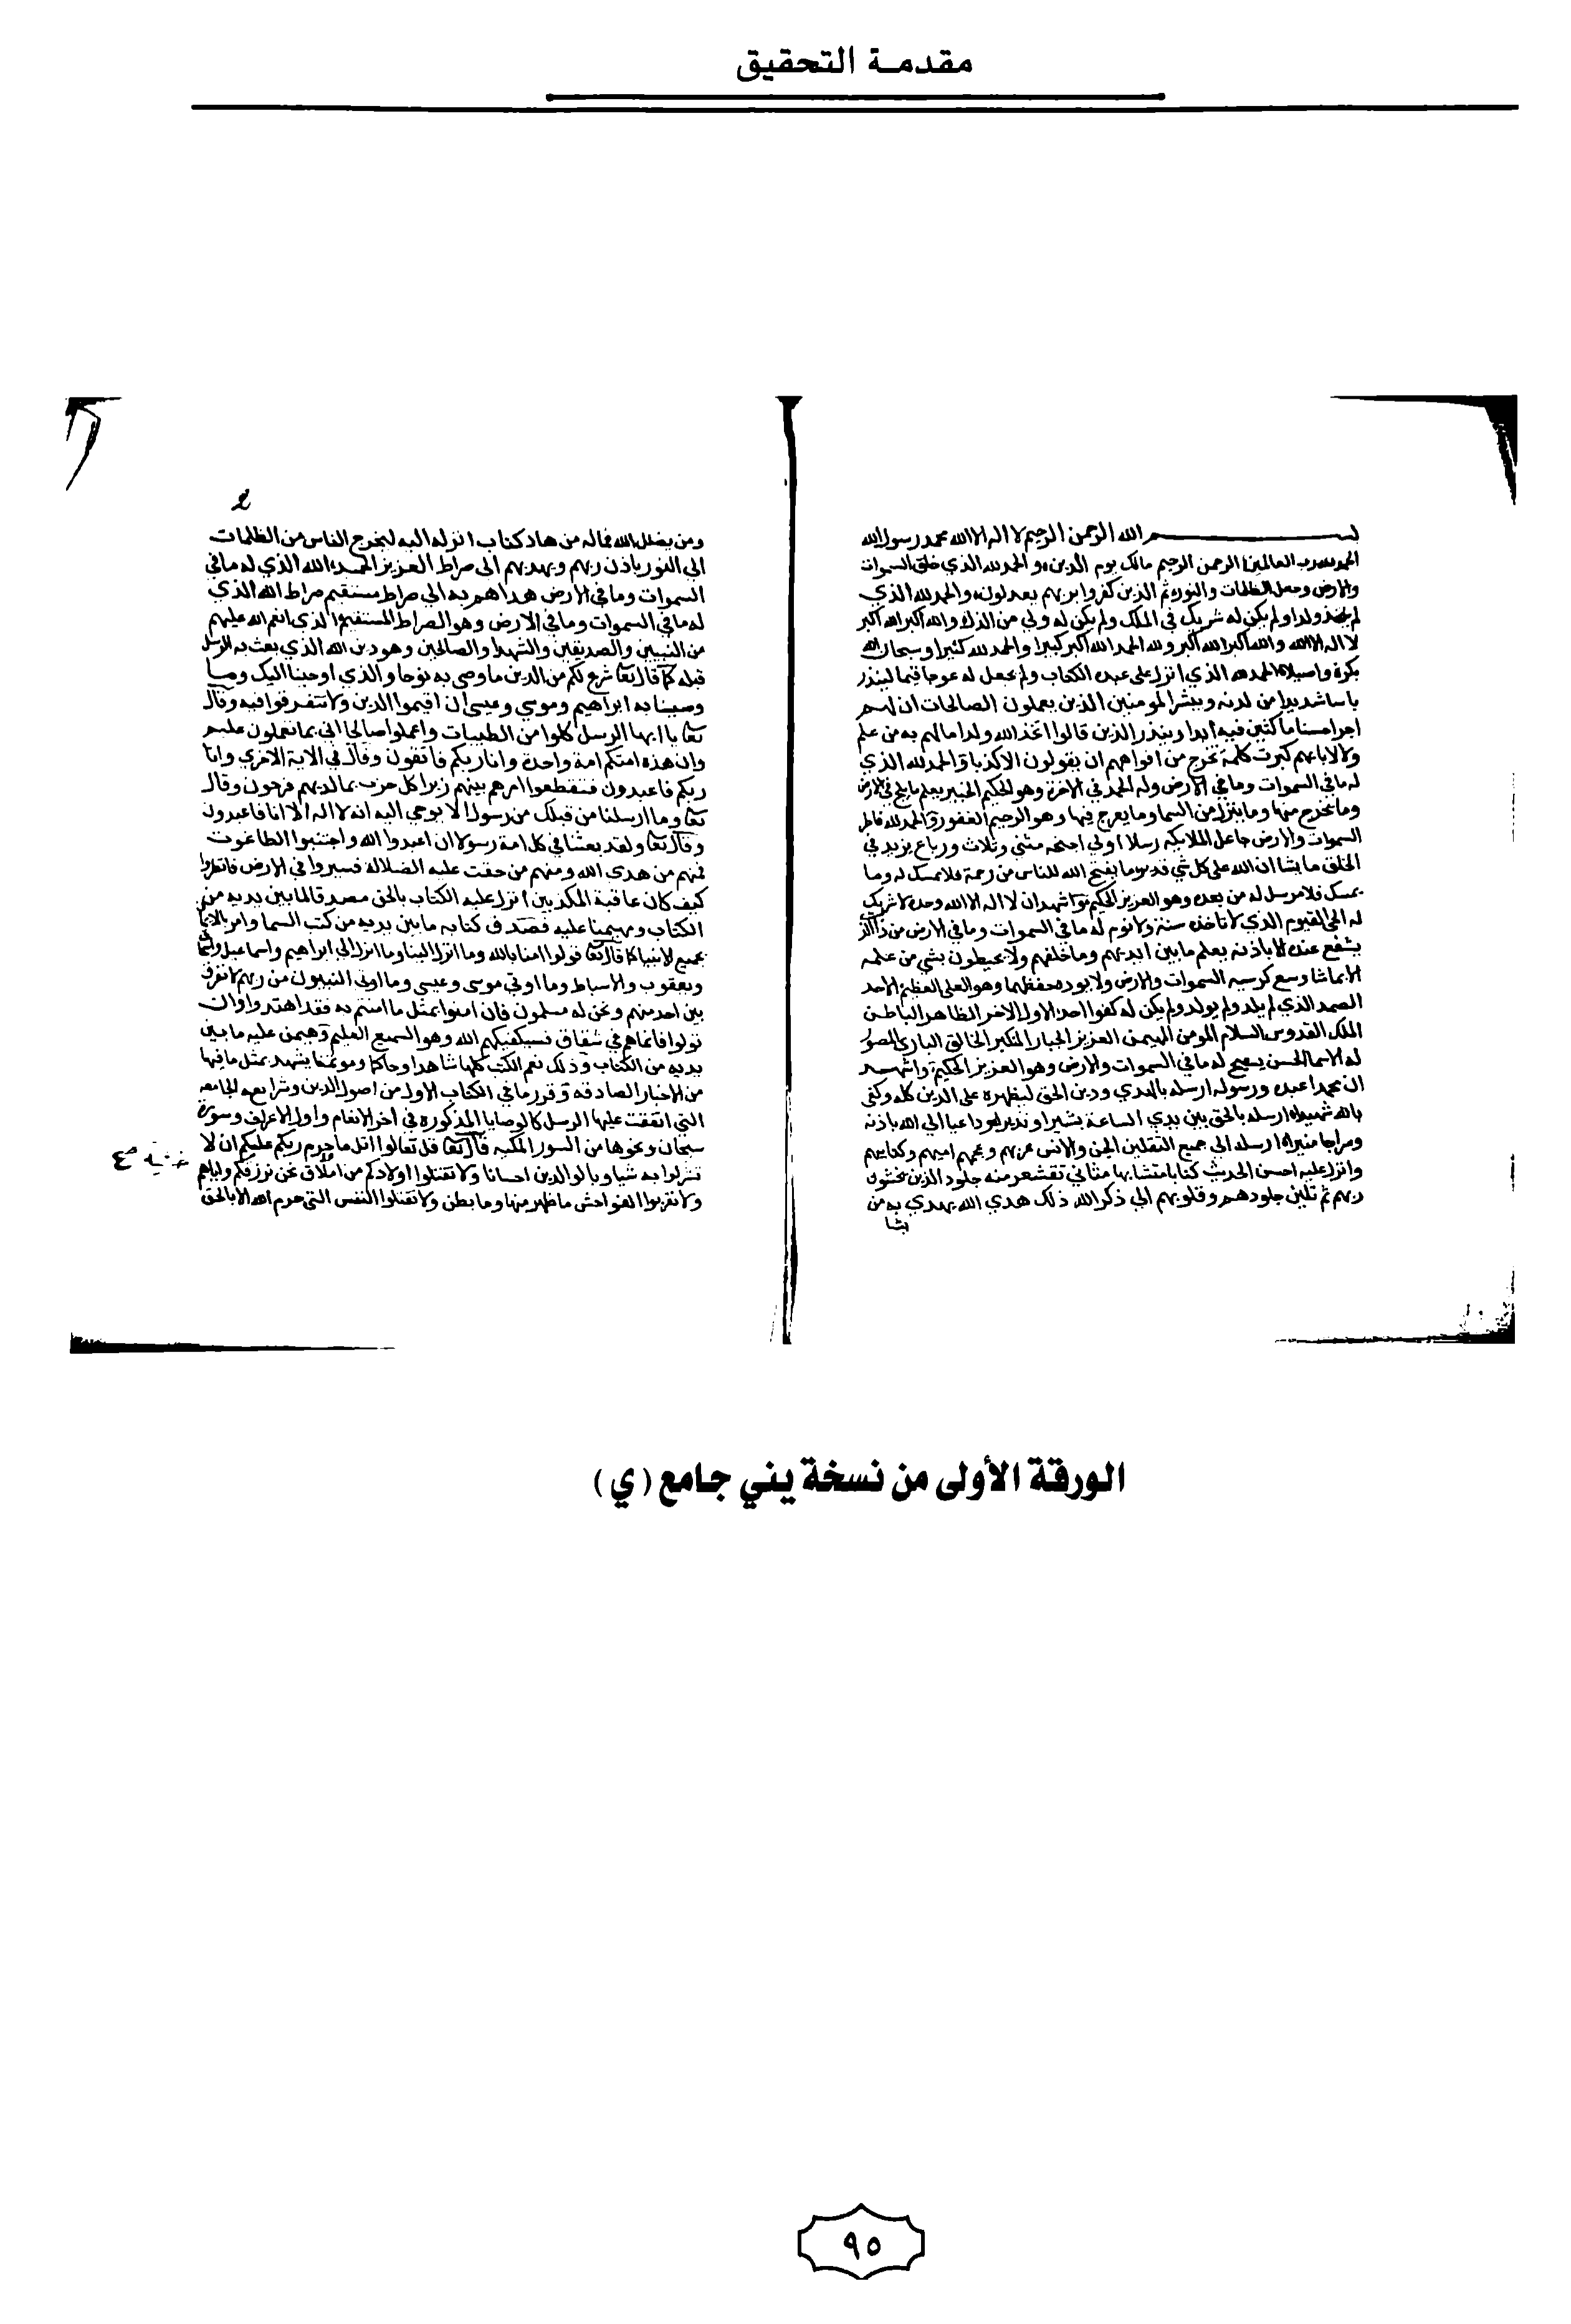 مقدمة التحقيق
بســـــم الله الرحمن الرحيم لا اله الا الله محمد رسول الله
الحمد لله رب العالمين الرحمن الرحيم مالك يوم الدين والحمد لله الذي خلق السموات
والارض وجعل الظلمات والنور ثم الذين كفروا بربهم يعدلون والحمد لله الذي
لم يتخذ ولدا ولم يكن له شريك في الملك ولم يكن له ولي من الذل والله اكبر الله اكبر
لا اله الا الله والله اكبر الله اكبر ولله الحمد الله اكبر كبيرا والحمد لله كثيرا وسبحان الله
بكرة واصيلا الحمد لله الذي انزل على عبده الكتاب ولم يجعل له عوجا قيما لينذر
باسا شديدا من لدنه ويبشر المومنين الذين يعملون الصالحات ان لهم
اجرا حسنا ماكثين فيه ابدا وينذر الذين قالوا اتخذ الله ولدا مالهم به من علم
ولا لابائهم كبرت كلمة تخرج من افواههم ان يقولون الا كذبا والحمد لله الذي
له ما في السموات وما في الارض وله الحمد في الاخرة وهو الحكيم الخبير يعلم ما يلج في الارض
وما يخرج منها وما ينزل من السما وما يعرج فيها وهو الرحيم الغفور والحمد لله فاطر
السموات والارض جاعل الملايكه رسلا اولي اجنحه مثنى وثلاث ورباع يزيد في
الخلق ما يشا ان الله على كل شي قدير ما يفتح الله للناس من رحمة فلا ممسك له وما
يمسك فلا مرسل له من بعده وهو العزيز الحكيم واشهد ان لا اله الا الله وحده لا شريك
له الحي القيوم الذي لا تاخذه سنة ولا نوم له ما في السموات وما في الارض من ذا الذ
يشفع عنده الا باذنه يعلم ما بين ايديهم وما خلفهم ولا يحيطون بشي من علمه
الا بما شا وسع كرسيه السموات والارض ولا يوده حفظهما وهو العلي العظيم الاحد
الصمد الذي لم يلد ولم يولد ولم يكن له كفوا احد الاول الاخر الظاهر الباطن
الملك القدوس السلام المومن المهيمن العزيز الجبار المتكبر الخالق الباري المصور
له الاسما الحسنى يسبح له ما في السموات والارض وهو العزيز الحكيم واشهد
ان محمدا عبده ورسوله ارسله بالهدي ودين الحق ليظهره على الدين كله وكفى
بالله شهيدا ارسله بالحق بين يدي الساعة بشيرا ونذيرا وداعيا الي الله باذنه
وسراجا منيرا ارسله الي جميع الثقلين الجن والانس عربهم وعجمهم اميهم وكتابيهم
وانزل عليه احسن الحديث كتابا متشابها مثاني تقشعر منه جلود الذين يخشون
ربهم ثم تلين جلودهم وقلوبهم الي ذكر الله ذلك هدي الله يهدي به من
يشا
2
ومن يضلل الله فماله من هاد كتاب انزله اليه ليخرج الناس من الظلمات
الي النور باذن ربهم ويهديهم الى صراط العزيز الحميد الله الذي له ما في
السموات وما في الارض هداهم به الي صراط مستقيم صراط الله الذي
له ما في السموات وما في الارض وهو الصراط المستقيم الذي انعم الله عليهم
من النبيين والصديقين والشهدا والصالحين وهو دين الله الذي بعث به الرسل
قبله كما قال تعا شرع لكم من الدين ما وصى به نوحا والذي اوحينا اليك وما
وصينا به ابراهيم وموسي وعيسى ان اقيموا الدين ولا تتفرقوا فيه وقال
تعا يا ايها الرسل كلوا من الطيبات واعملوا صالحا اني بما تعملون عليم
وان هذه امتكم امة واحدة وانا ربكم فاتقون وقال في الاية الاخري وانا
ربكم فاعبدون فتقطعوا امرهم بينهم زبرا كل حزب بما لديهم فرحون وقال
تعا وما ارسلنا من قبلك من رسول الا يوحي اليه انه لا اله الا انا فاعبدون
وقال تعا ولقد بعثنا في كل امة رسولا ان اعبدوا الله واجتنبوا الطاغوت
فمنهم من هدي الله ومنهم من حقت عليه الضلالة فسيروا في الارض فانظروا
كيف كان عاقبة المكذبين انزل عليه الكتاب بالحق مصدقا لما بين يديه من
الكتاب ومهيمنا عليه فصدق كتابه ما بين يديه من كتب السما وامر بالايمان
بجميع الانبيا كما قال تعا قولوا امنا بالله وما انزل الينا وما انزل الي ابراهيم واسماعيل واسحاق
ويعقوب والاسباط وما اوتي موسى وعيسي وما اوتي النبيون من ربهم لا نفرق
بين احد منهم ونحن له مسلمون فان امنوا بمثل ما امنتم به فقد اهتدوا وان
تولوا فانما هم في شقاق فسيكفيكهم الله وهو السميع العليم وهيمن عليه ما بين
يديه من الكتاب وذلك نعم الكتب كلها شاهدا وحاكما وموتمنا يشهد بمثل ما فيها
من الاخبار الصادقه وقرر ما في الكتاب الاول من اصول الدين وشرايعه الجامعه
التي اتفقت عليها الرسل كالوصايا المذكوره في اخر الانعام واول الاعراف وسورة
سبحان ونحوها من السور المكيه قال تعا قل تعالوا اتل ما حرم ربكم عليكم ان لا
تشركوا به شيا وبالوالدين احسانا ولا تقتلوا اولادكم من املاق نحن نرزقكم واياهم
ولا تقربوا الفواحش ما ظهر منها وما بطن ولا تقتلوا النفس التي حرم الله الا بالحق
الورقة الأولى من نسخة يني جامع (ي)
٩٥